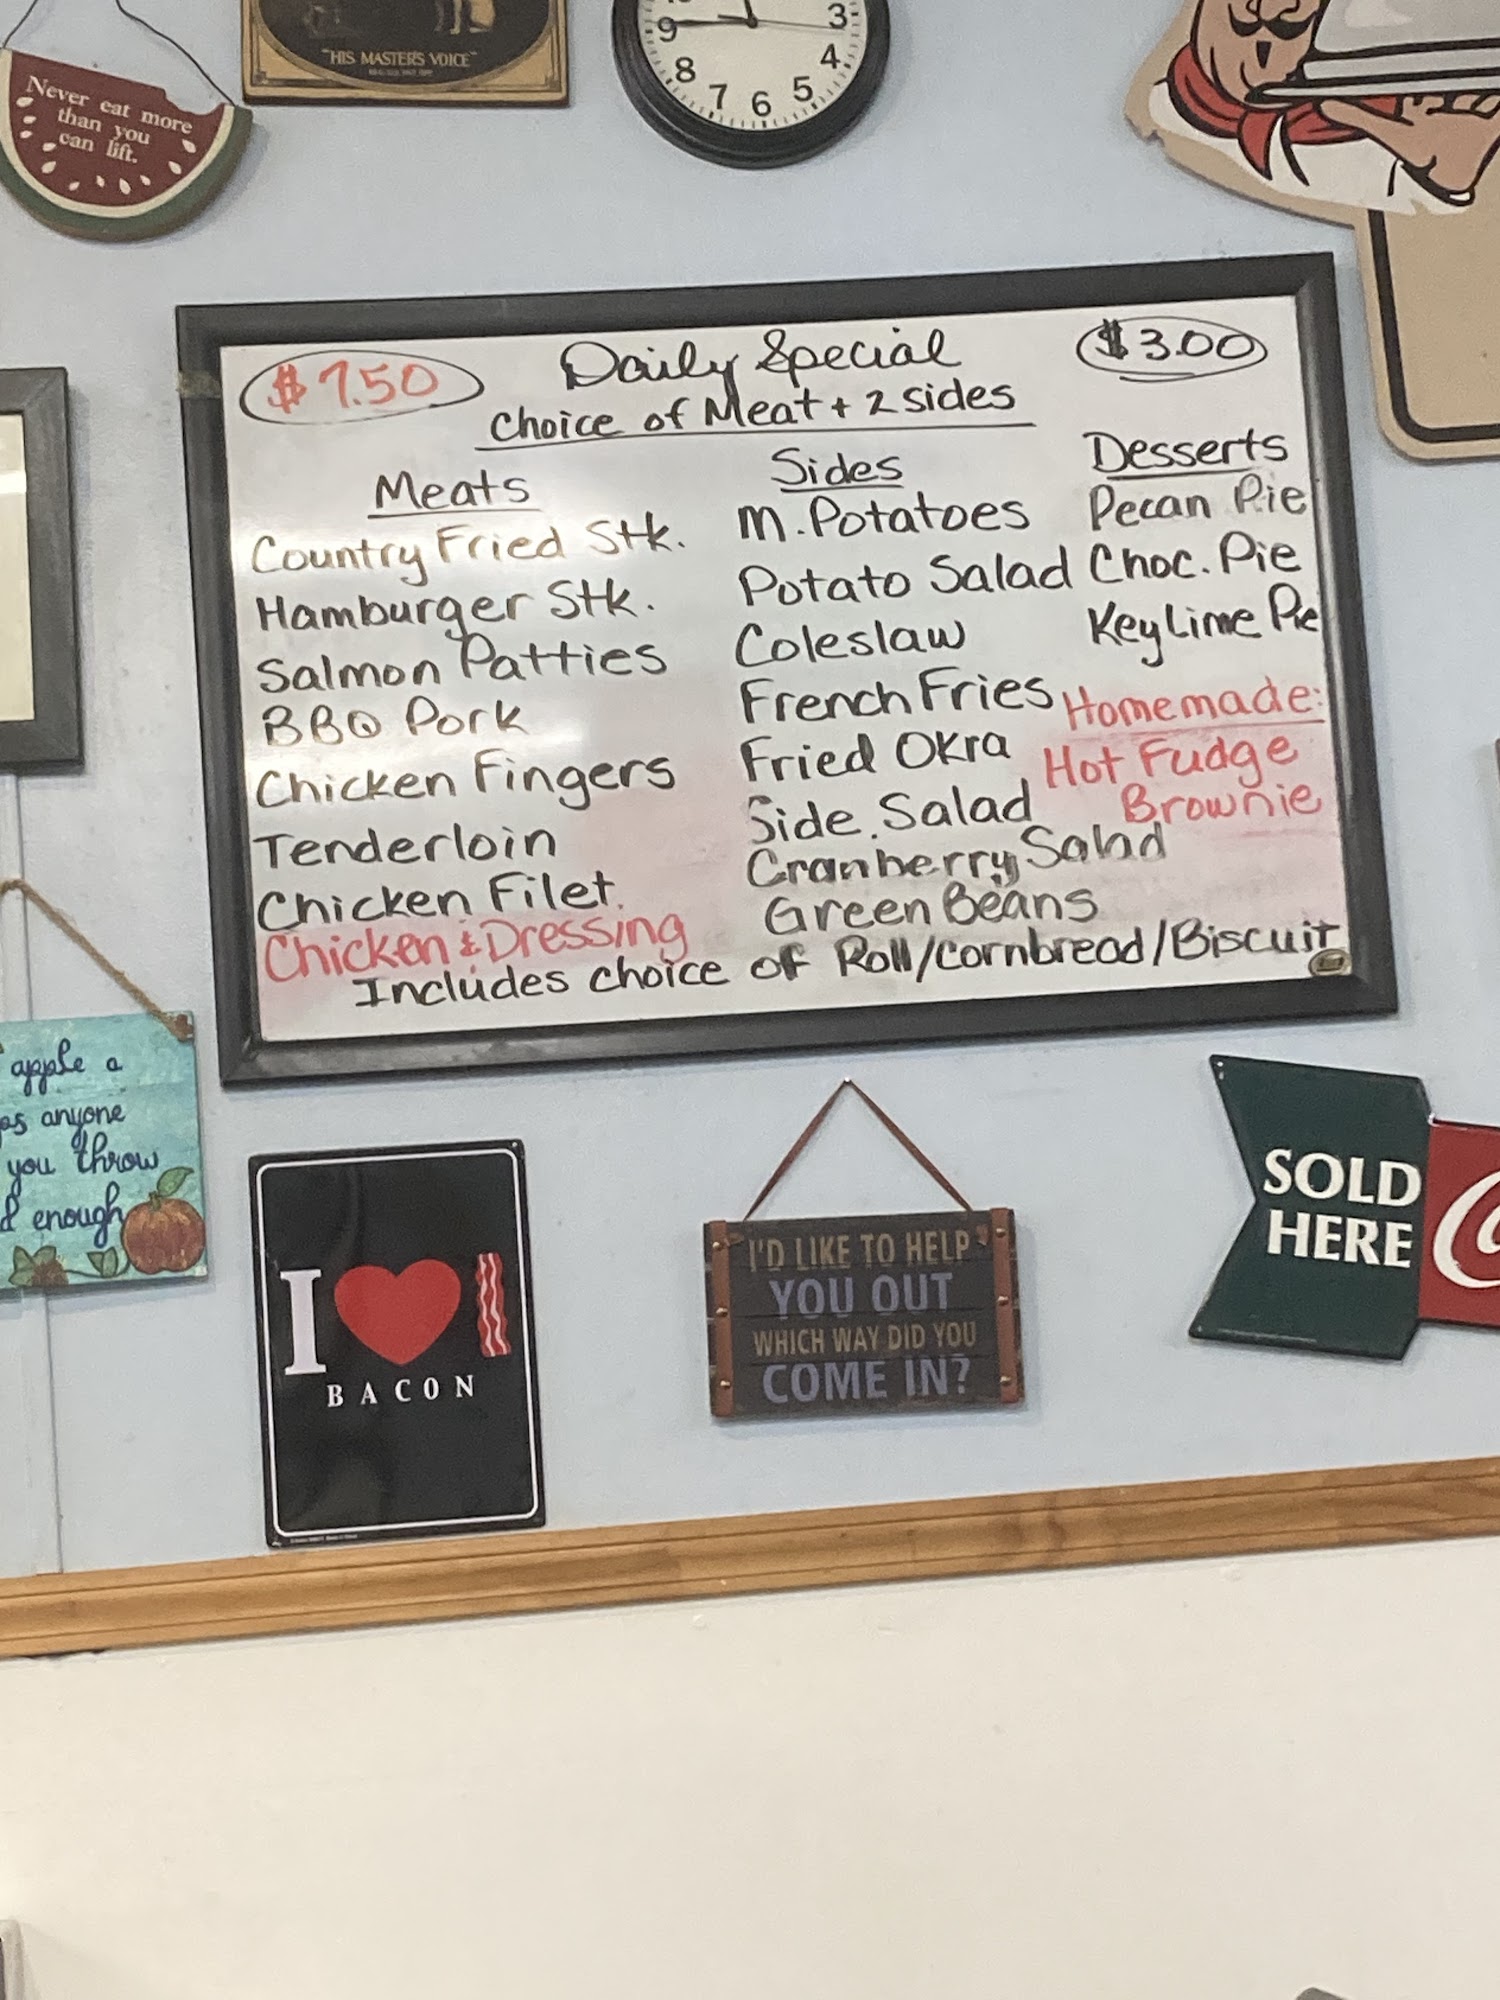 Never eat more
than you
can lift.
"HIS MASTER'S VOICE"
9 3
8 4
7 6 5
$7.50 Daily Special $3.00
Choice of Meat + 2 sides
Meats
Country Fried Stk.
Hamburger Stk.
Salmon Patties
BBQ Pork
Chicken Fingers
Tenderloin
Chicken Filet.
Chicken & Dressing
Sides
M. Potatoes
Potato Salad
Coleslaw
French Fries
Fried Okra
Side Salad
Cranberry Salad
Green Beans
Desserts
Pecan Pie
Choc. Pie
Key Lime Pie
Homemade:
Hot Fudge
Brownie
Includes choice of Roll/Cornbread/Biscuit
apple a
as anyone
you throw
enough
I
BACON
I'D LIKE TO HELP
YOU OUT
WHICH WAY DID YOU
COME IN?
SOLD
HERE